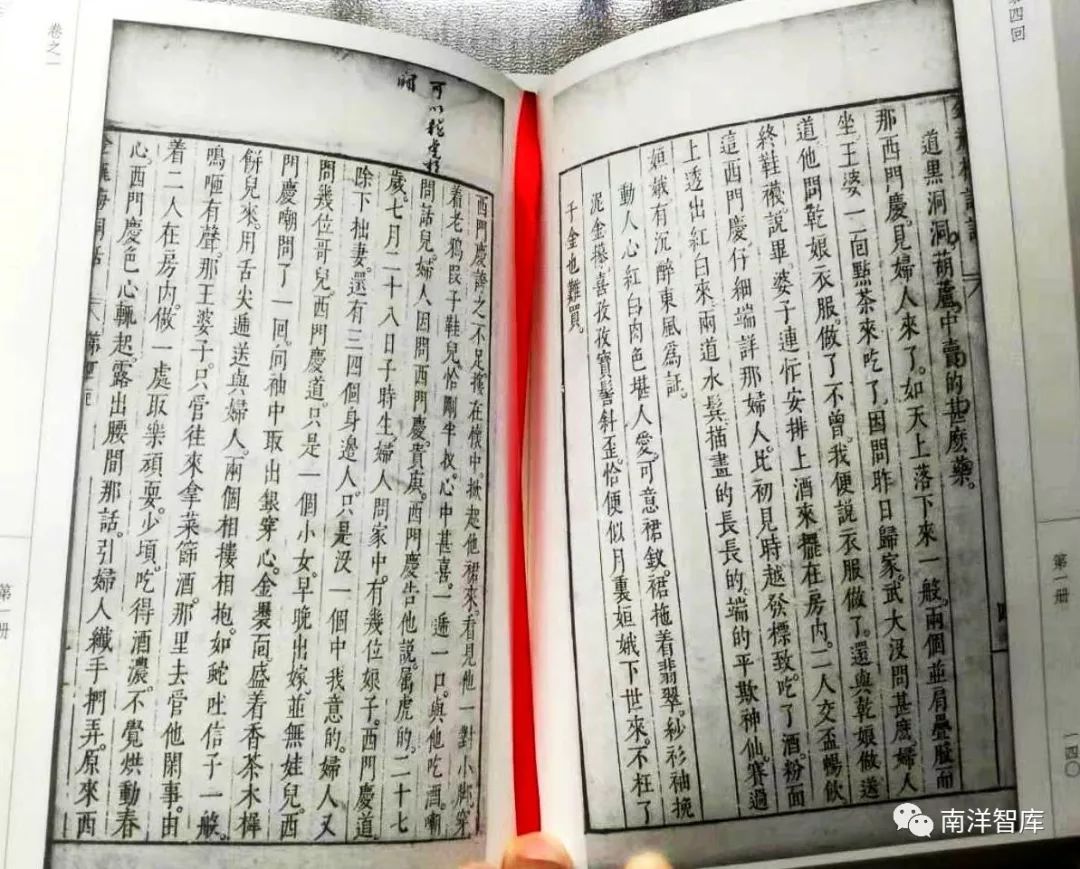 第四回
第一册
一四〇
道黑洞洞葫蘆中賣的甚麼藥。
那西門慶見婦人來了。如天上落下來一般。兩個並肩疊股而
坐。王婆一面點茶來吃了。因問昨日歸家。武大没問甚麽。婦人
道他問乾娘衣服。做了不曾。我便說衣服做了。還與乾娘做送
終鞋襪。說畢。婆子連忙安排上酒來。擺在房內。二人交盃暢飲
這西門慶。仔細端詳那婦人。比初見時越發標致。吃了酒。粉面
上透出紅白來。兩道水鬂描畫的長長的。端的平欺神仙。賽過
姮娥。有沉醉東風爲証。
動人心紅白肉色。堪人愛。可意裙釵。裙拖着翡翠。紗衫袖挽
泥金㩟。喜孜孜寶髻斜歪。恰便似月裏姮娥下世來。不枉了
千金也難買。
可以
西門慶誇之不足。摟在懷中。掀起他裙來。看見他一對小脚。穿
着老鴉段子鞋兒。恰剛半扠。心中甚喜。一遞一口。與他吃酒。嘲
問話兒。婦人因問西門慶貴庚。西門慶告他說。屬虎的。二十七
歲。七月二十八日子時生。婦人問家中。有幾位娘子。西門慶道
除下拙妻。還有三四個身邊人。只是没一個中我意的。婦人又
問幾位哥兒。西門慶道。只是一個小女。早晚出嫁。並無娃兒。西
門慶嘲問了一回。向袖中取出銀穿心。金裹面。盛着香茶木樨
餅兒來。用舌尖遞送與婦人。兩個相摟相抱。如蛇吐信子一般。
鳴咂有聲。那王婆子。只管往來拿菜篩酒。那里去管他閑事。由
着二人在房內。做一處取樂頑耍。少頃。吃得酒濃。不覺烘動春
心。西門慶色心輒起。露出腰間那話。引婦人纖手捫弄。原來西
卷之一
第一册
南洋智库